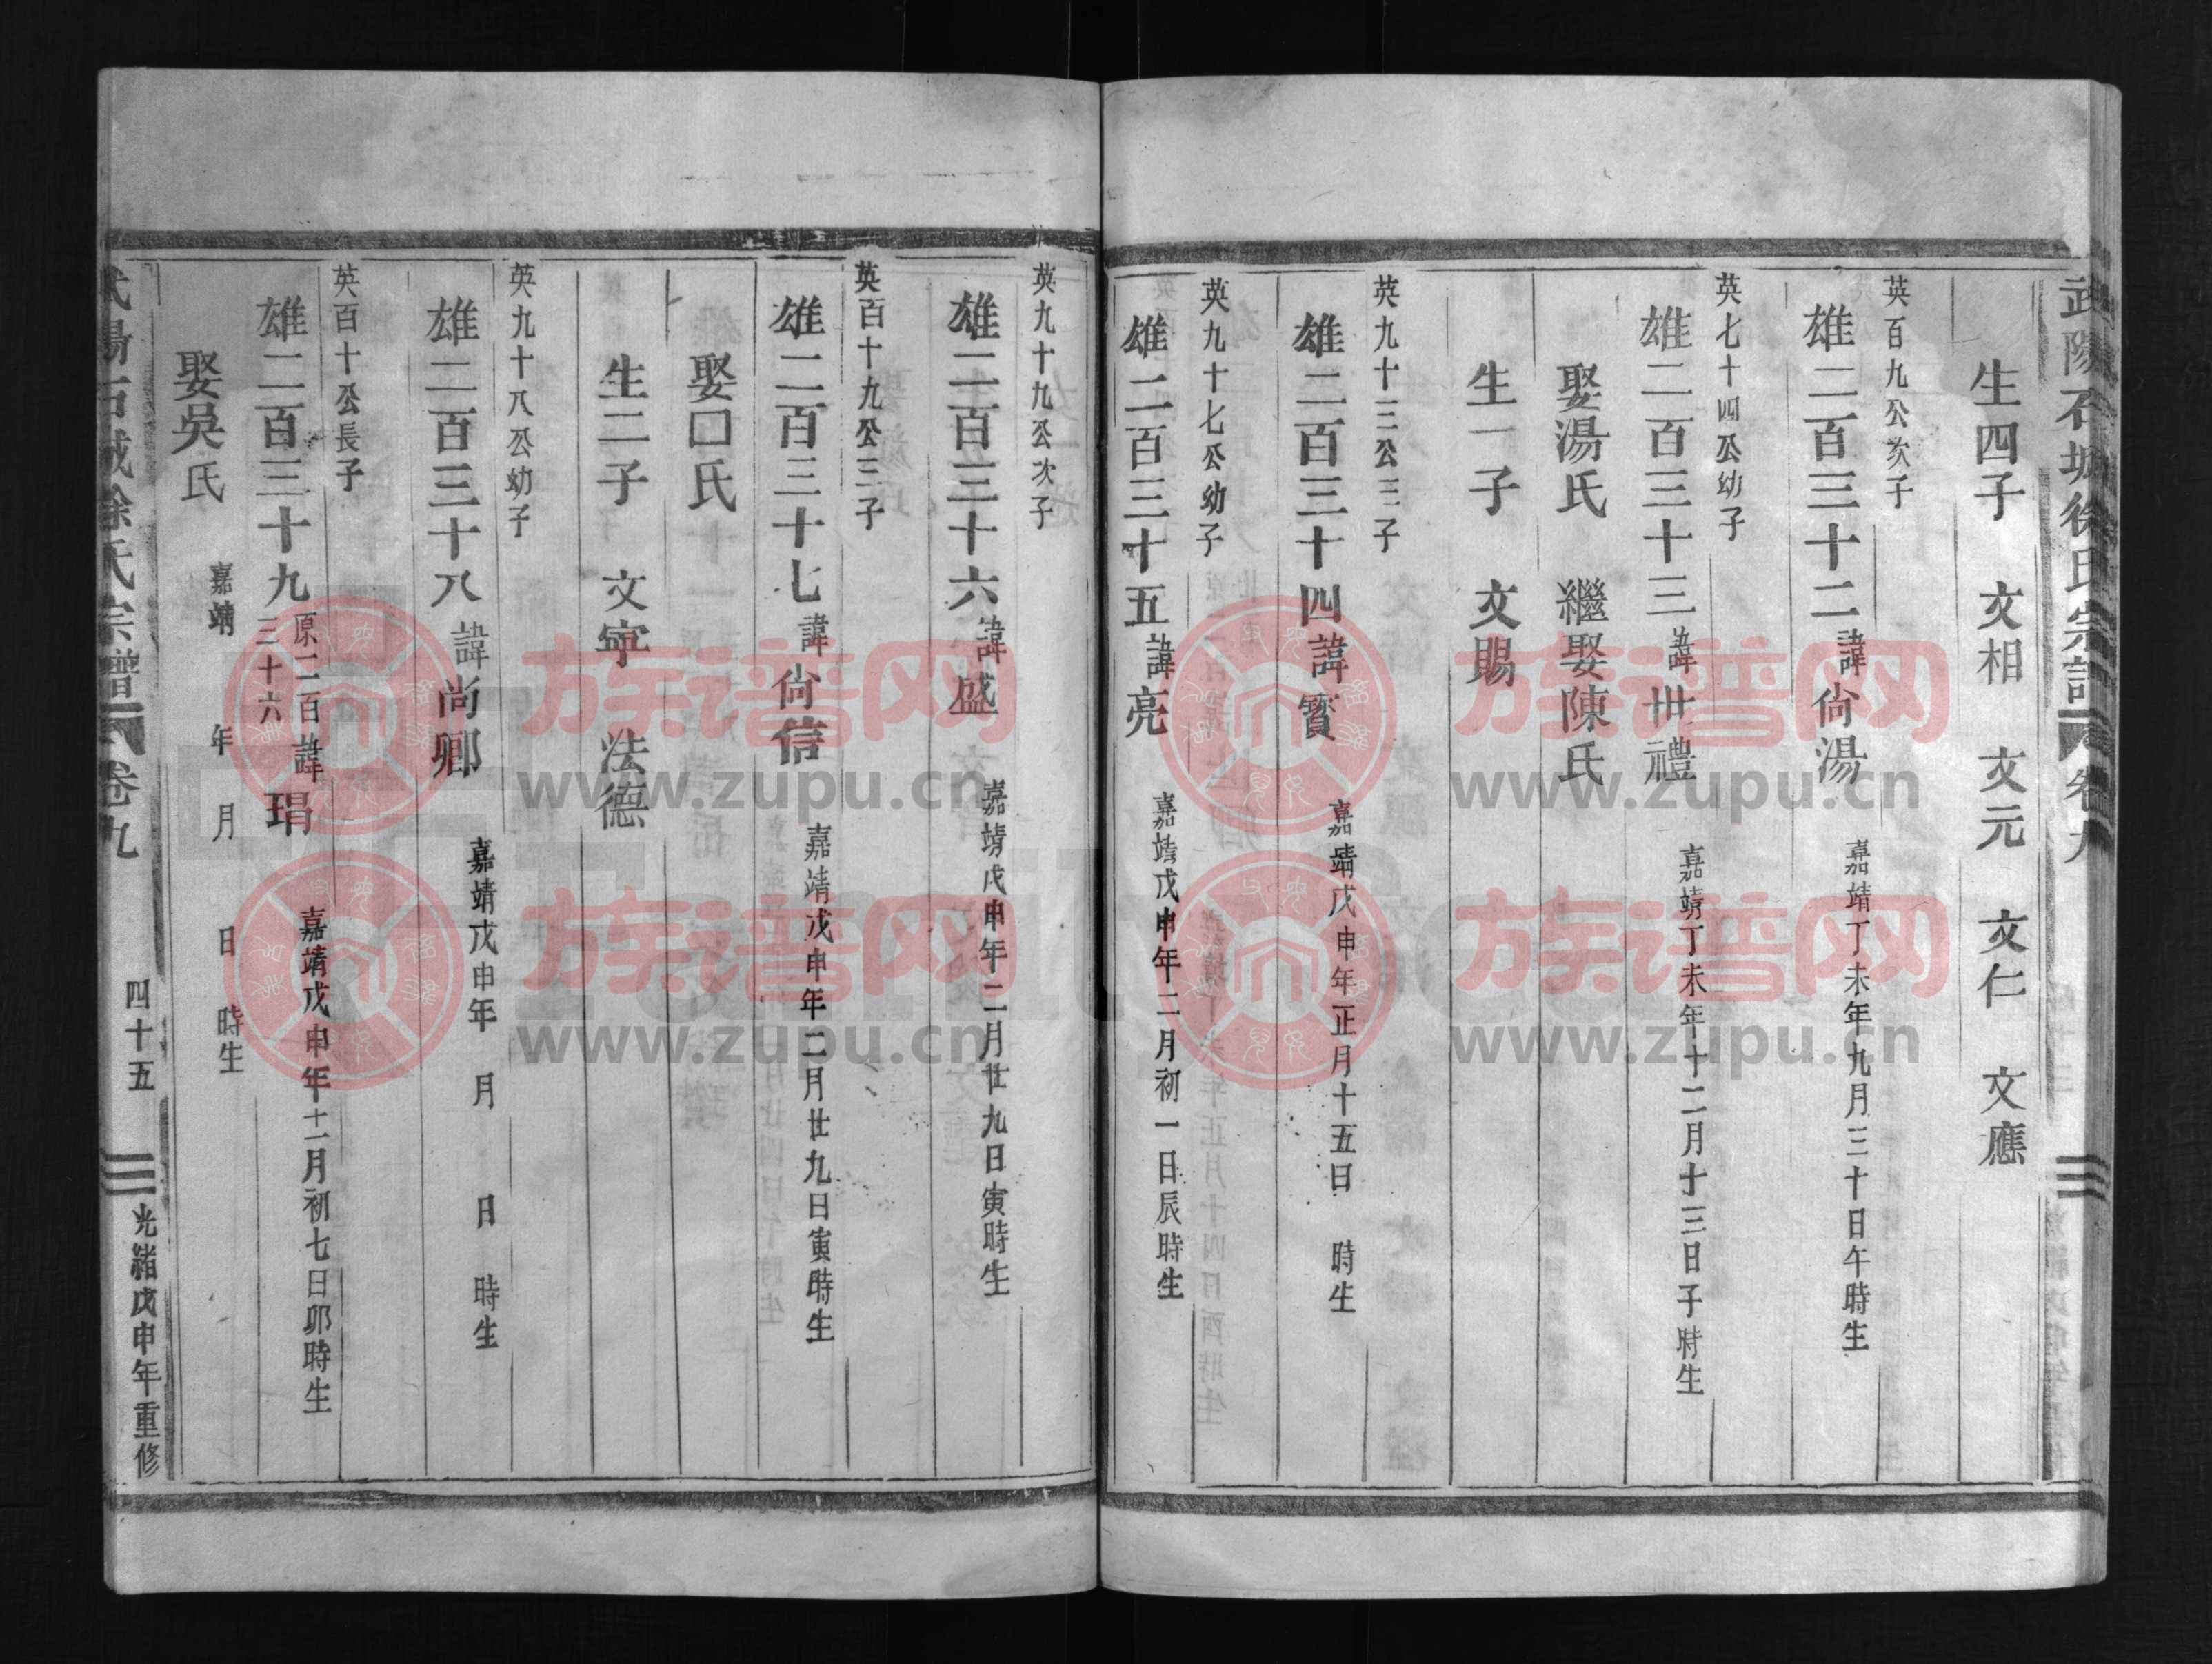 武陽石城徐氏宗譜 卷九
生四子 文相 文元 文仁 文應
英百九公次子
雄二百三十二 諱尙湯 嘉靖丁未年九月三十日午時生
英七十四公幼子
雄二百三十三 諱世禮 嘉靖丁未年十二月十三日子時生
娶湯氏 繼娶陳氏
生一子 文賜
英九十三公三子
雄二百三十四 諱寳 嘉靖戊申年正月十五日 時生
英九十七公幼子
雄二百三十五 諱亮 嘉靖戊申年二月初一日辰時生
英九十九公次子
雄二百三十六 諱盛 嘉靖戊申年二月廿九日寅時生
英百十九公三子
雄二百三十七 諱尙信 嘉靖戊申年二月廿九日寅時生
娶口氏
生二子 文寜 法德
英九十八公幼子
雄二百三十八 諱尚卿 嘉靖戊申年 月 日 時生
英百十公長子
雄二百三十九 原二百三十六 諱琄 嘉靖戊申年十一月初七日卯時生
娶吳氏 嘉靖 年 月 日 時生
武陽石城徐氏宗譜 卷九 四十五 光緒戊申年重修
族谱网
www.zupu.cn
族谱网
www.zupu.cn
族谱网
www.zupu.cn
族谱网
www.zupu.cn